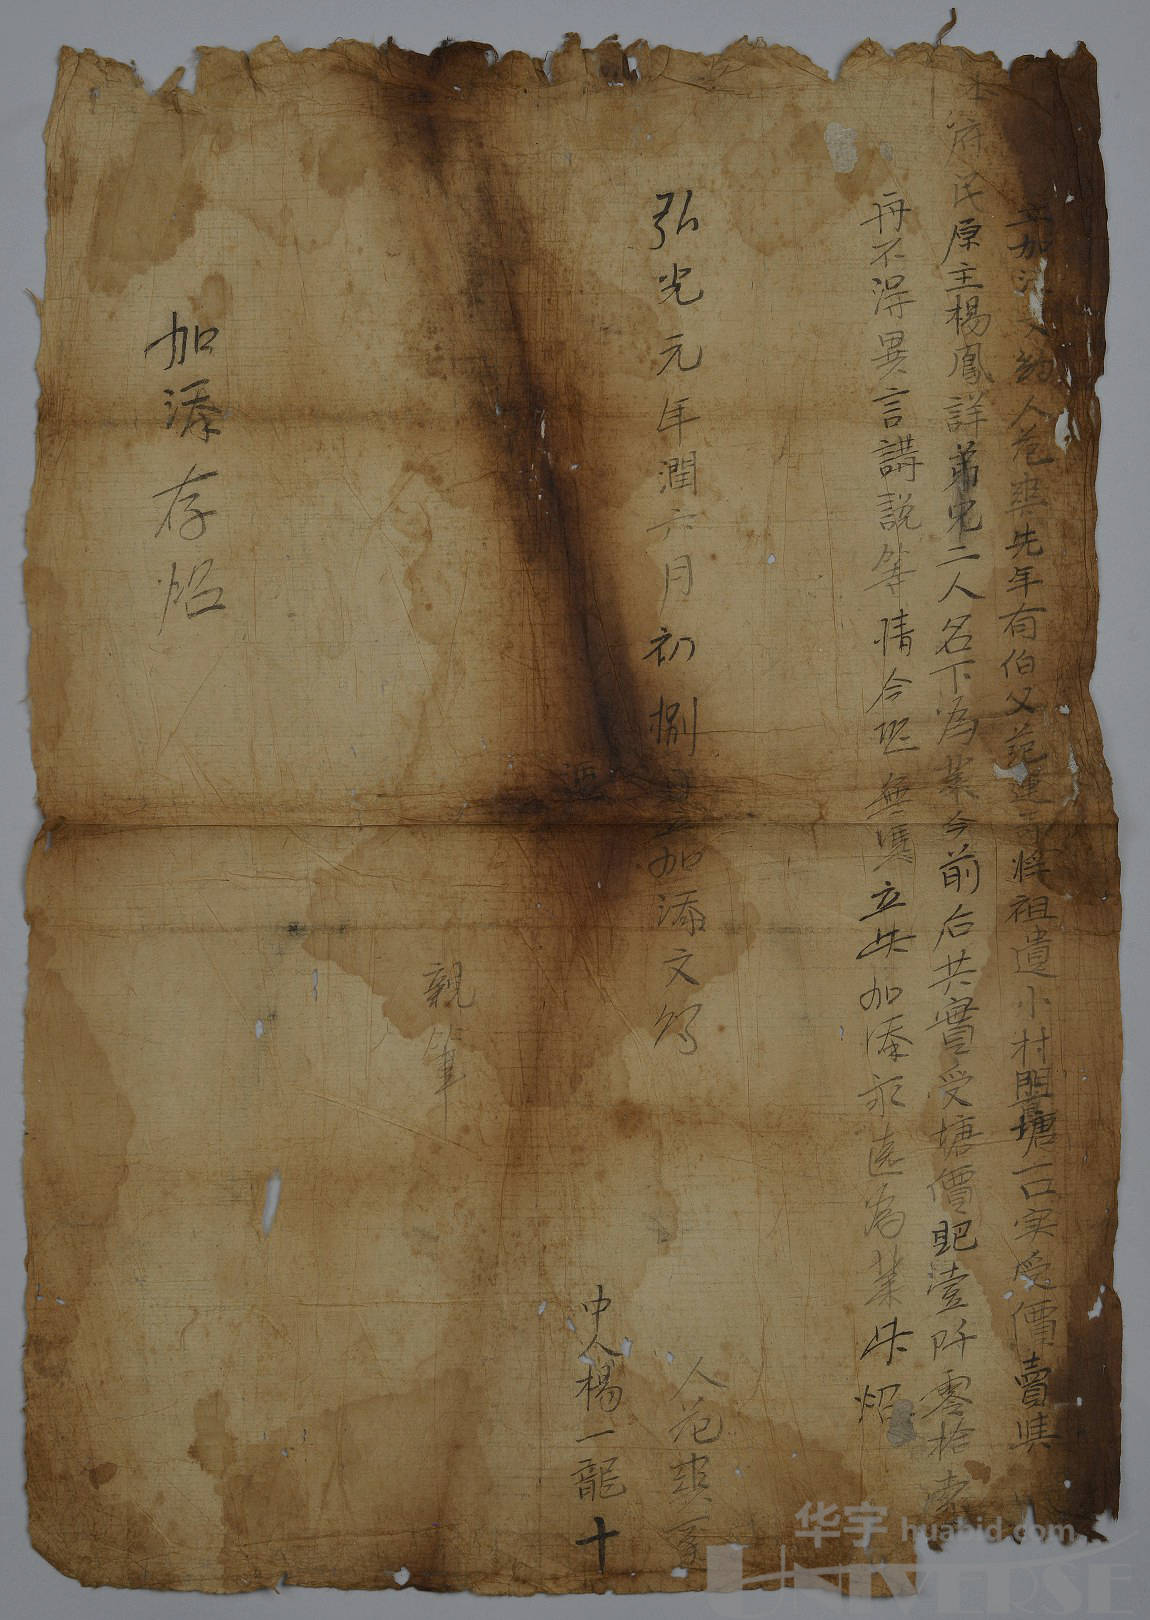 加添文約人范爽先年有伯父范連 將祖遺小村塱塘一口实受價賣與
府民原主楊鳳詳弟兄二人名下為業今前后共實受塘價𧴩壹阡零拾索
再不得異言講說等情今恐無憑立此加添永遠為業此炤
弘光元年潤六月初捌日立加添文約
人范爽
中人楊一龍十
親筆
加添存炤
华宇 huabid.com
UNIVERSE